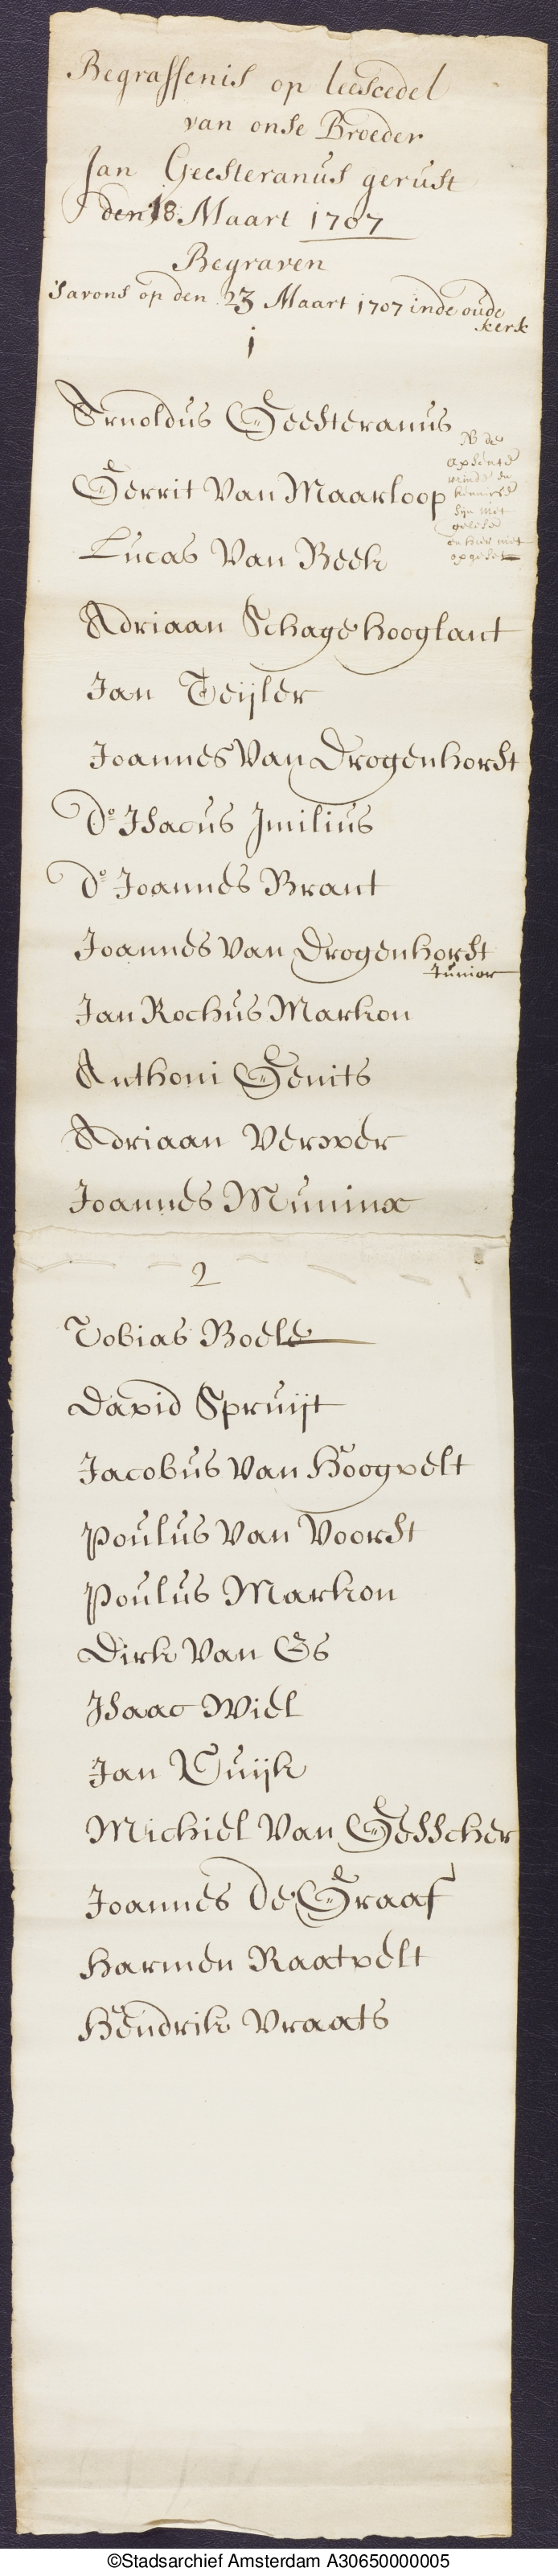 Begraffenis op leescedel
van onse Broeder
Jan Geesteranus gerust
den 18 Maart 1707
Begraven
Savons op den 23 Maart 1707 inde oude
kerk
1
Arnoldus Geesteranus
NB de
apsente
vrinde en
kennisse
sijn met
gelesen
en hier niet
opgeset
Gerrit Van Maarloop
Lucas Van Beek
Adriaan Schage Hooglant
Jan Teijler
Joannes Van Drogenhorst
Do Isacus Imilius
Do Joannes Brant
Joannes Van Drogenhorst
Junior
Jan Rochus Markon
Anthoni Genits
Adriaan Verwer
Joannes Muninx
2
Tobias Boele
David Spruijt
Jacobus Van Hoogvelt
Poulus Van Voorst
Poulus Markon
Dirk Van Es
Isaac Wiel
Jan Kuijk
Michiel Van Gesscher
Joannes De Graaf
Harmen Raatvelt
Hendrik Vraats
©Stadsarchief Amsterdam A30650000005